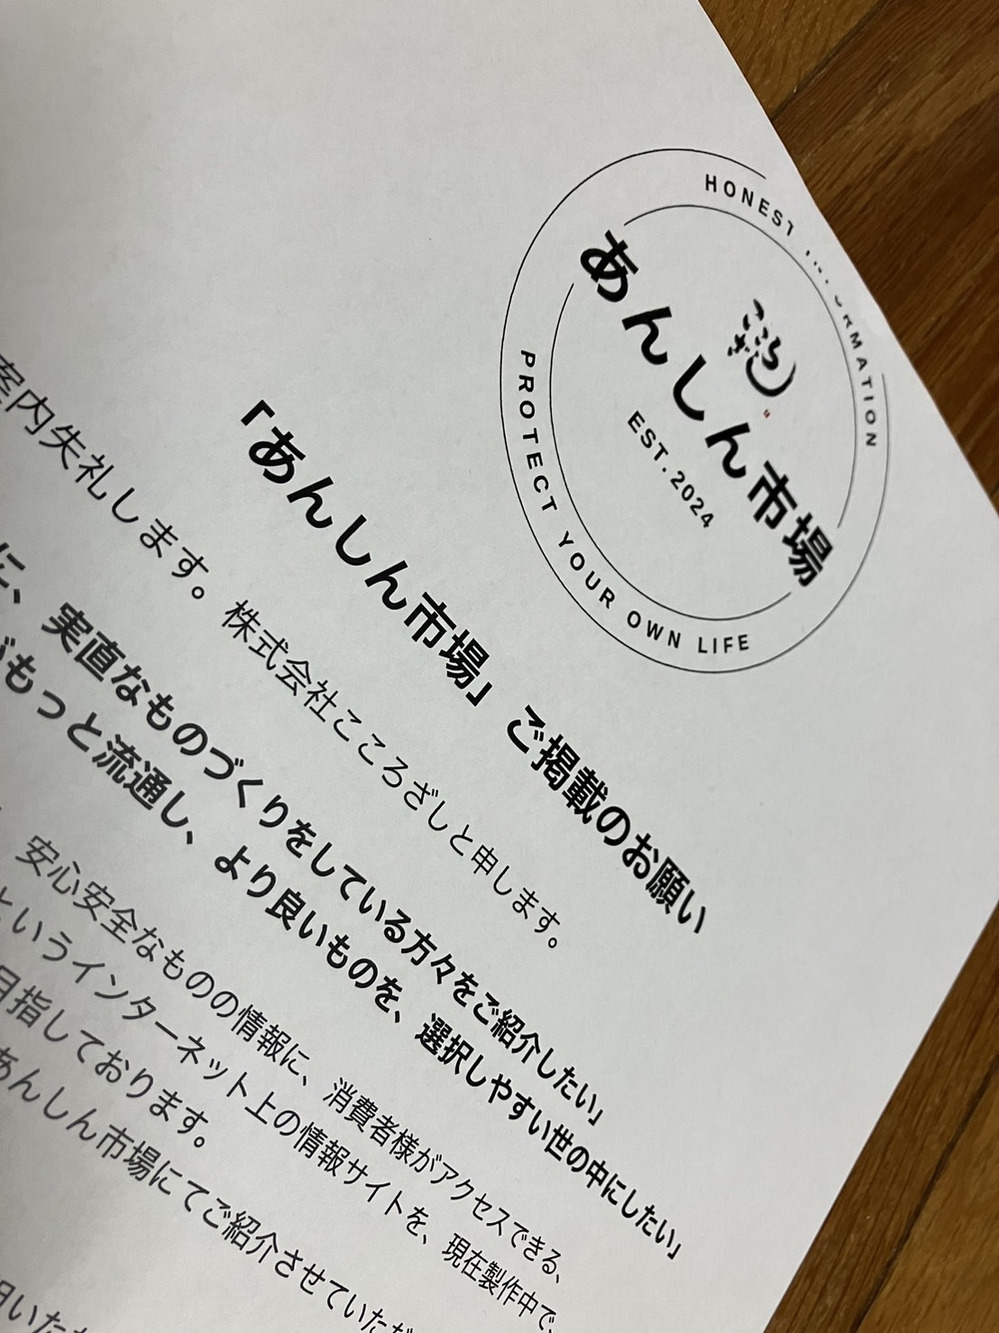 HONEST INFORMATION
こころざし
あんしん市場
EST.2024
PROTECT YOUR OWN LIFE
「あんしん市場」ご掲載のお願い
案内失礼します。株式会社こころざしと申します。
に、実直なものづくりをしている方々をご紹介したい」
がもっと流通し、より良いものを、選択しやすい世の中にしたい」
安心安全なものの情報に、消費者様がアクセスできる、
というインターネット上の情報サイトを、現在製作中で、
目指しております。
あんしん市場にてご紹介させていただ